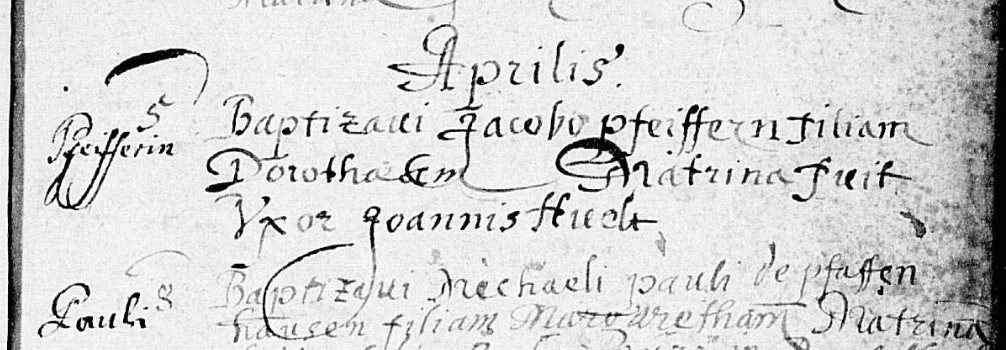 Aprilis.
5
Pfeifferin
Baptizaui Jacobo Pfeiffern filiam
Dorothaeam Matrina fuit
Vxor Joannis
Pauli 8
Baptizaui Michaeli Pauli de Pfaffen
hausen filiam Margaretham Matrina